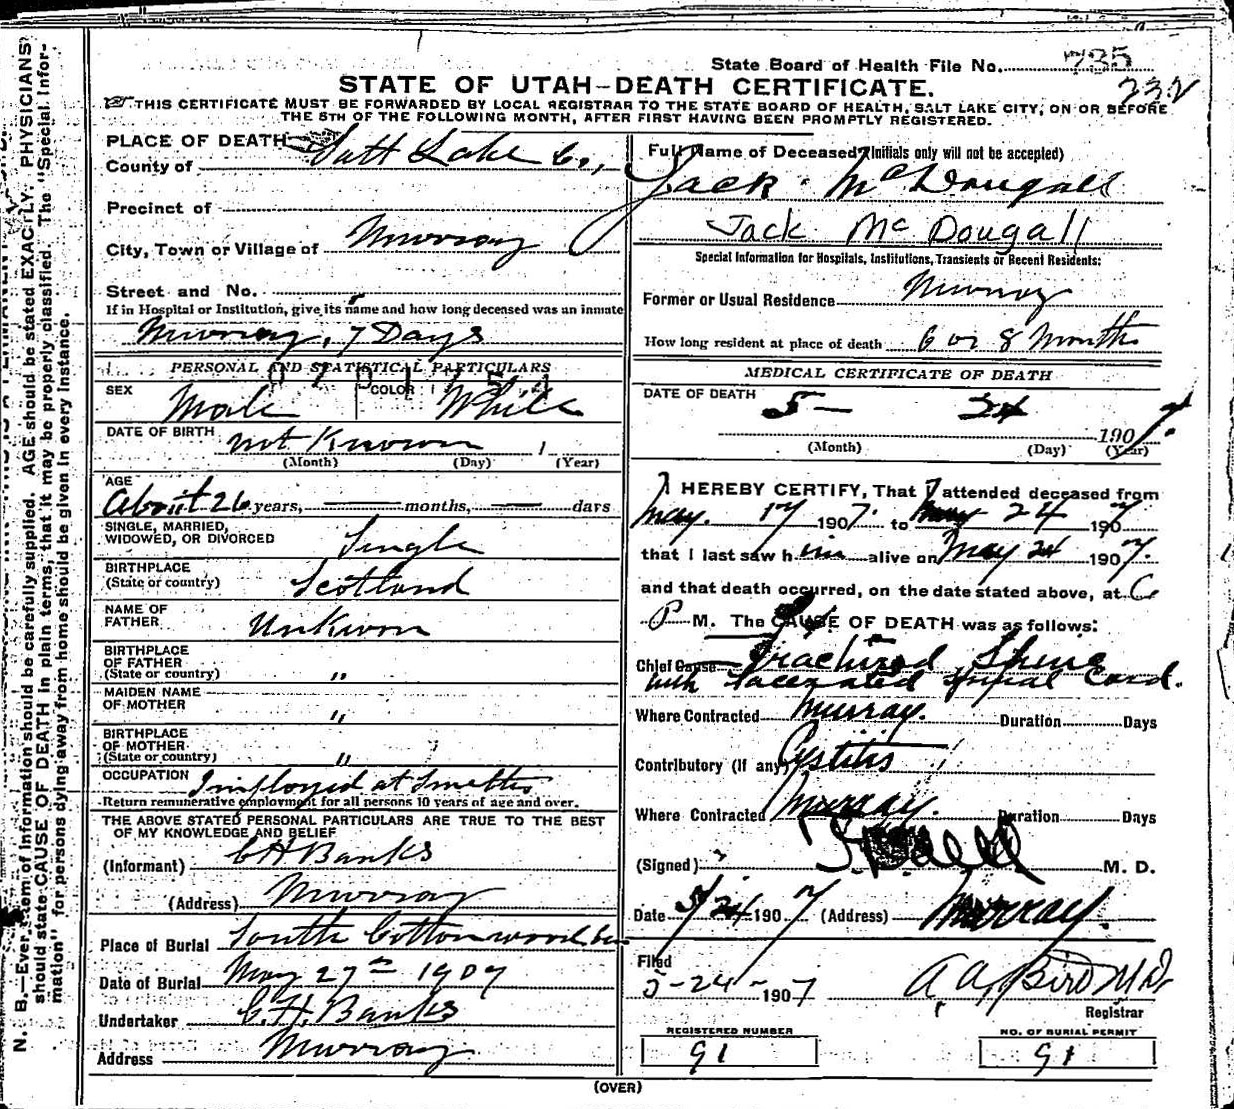 State Board of Health File No. 735
232
STATE OF UTAH—DEATH CERTIFICATE.
THIS CERTIFICATE MUST BE FORWARDED BY LOCAL REGISTRAR TO THE STATE BOARD OF HEALTH, SALT LAKE CITY, ON OR BEFORE
THE 5TH OF THE FOLLOWING MONTH, AFTER FIRST HAVING BEEN PROMPTLY REGISTERED.
PLACE OF DEATH
County of Salt Lake Co.,
Precinct of
City, Town or Village of Murray
Street and No.
If in Hospital or Institution, give its name and how long deceased was an inmate
Murray, 7 Days
PERSONAL AND STATISTICAL PARTICULARS
SEX Male COLOR White
DATE OF BIRTH not Known 1
(Month) (Day) (Year)
AGE
About 26 years, months, days
SINGLE, MARRIED,
WIDOWED, OR DIVORCED Single
BIRTHPLACE
(State or country) Scotland
NAME OF
FATHER UnKnown
BIRTHPLACE
OF FATHER
(State or country) "
MAIDEN NAME
OF MOTHER "
BIRTHPLACE
OF MOTHER
(State or country) "
OCCUPATION Imployed at Smelter
Return remunerative employment for all persons 10 years of age and over.
THE ABOVE STATED PERSONAL PARTICULARS ARE TRUE TO THE BEST
OF MY KNOWLEDGE AND BELIEF
(Informant) C H Banks
(Address) Murray
Place of Burial South Cottonwood
Date of Burial May 27th 1907
Undertaker C. H. Banks
Address Murray
Full Name of Deceased (Initials only will not be accepted)
Jack McDougall
Jack McDougall
Special Information for Hospitals, Institutions, Transients or Recent Residents:
Former or Usual Residence Murray
How long resident at place of death 6 or 8 Months
MEDICAL CERTIFICATE OF DEATH
DATE OF DEATH 5— 24 1907.
(Month) (Day) (Year)
I HEREBY CERTIFY, That I attended deceased from
May. 17 1907. to May 24 1907
that I last saw him alive on May 24 1907.
and that death occurred, on the date stated above, at 6
P M. The CAUSE OF DEATH was as follows:
Chief Cause Fractured Spine
with lacerated spinal Cord.
Where Contracted Murray. Duration Days
Contributory (if any) Cystitis
Where Contracted Murray. Duration Days
(Signed) M. D.
Date 5/24 1907 (Address) Murray.
Filed
5-24-1907 A A Bird M.D.
Registrar
REGISTERED NUMBER
91
NO. OF BURIAL PERMIT
91
(OVER)
N. B.—Every item of information should be carefully supplied. AGE should be stated EXACTLY. PHYSICIANS
should state CAUSE OF DEATH in plain terms, that it may be properly classified. The "Special Infor-
mation" for persons dying away from home should be given in every instance.